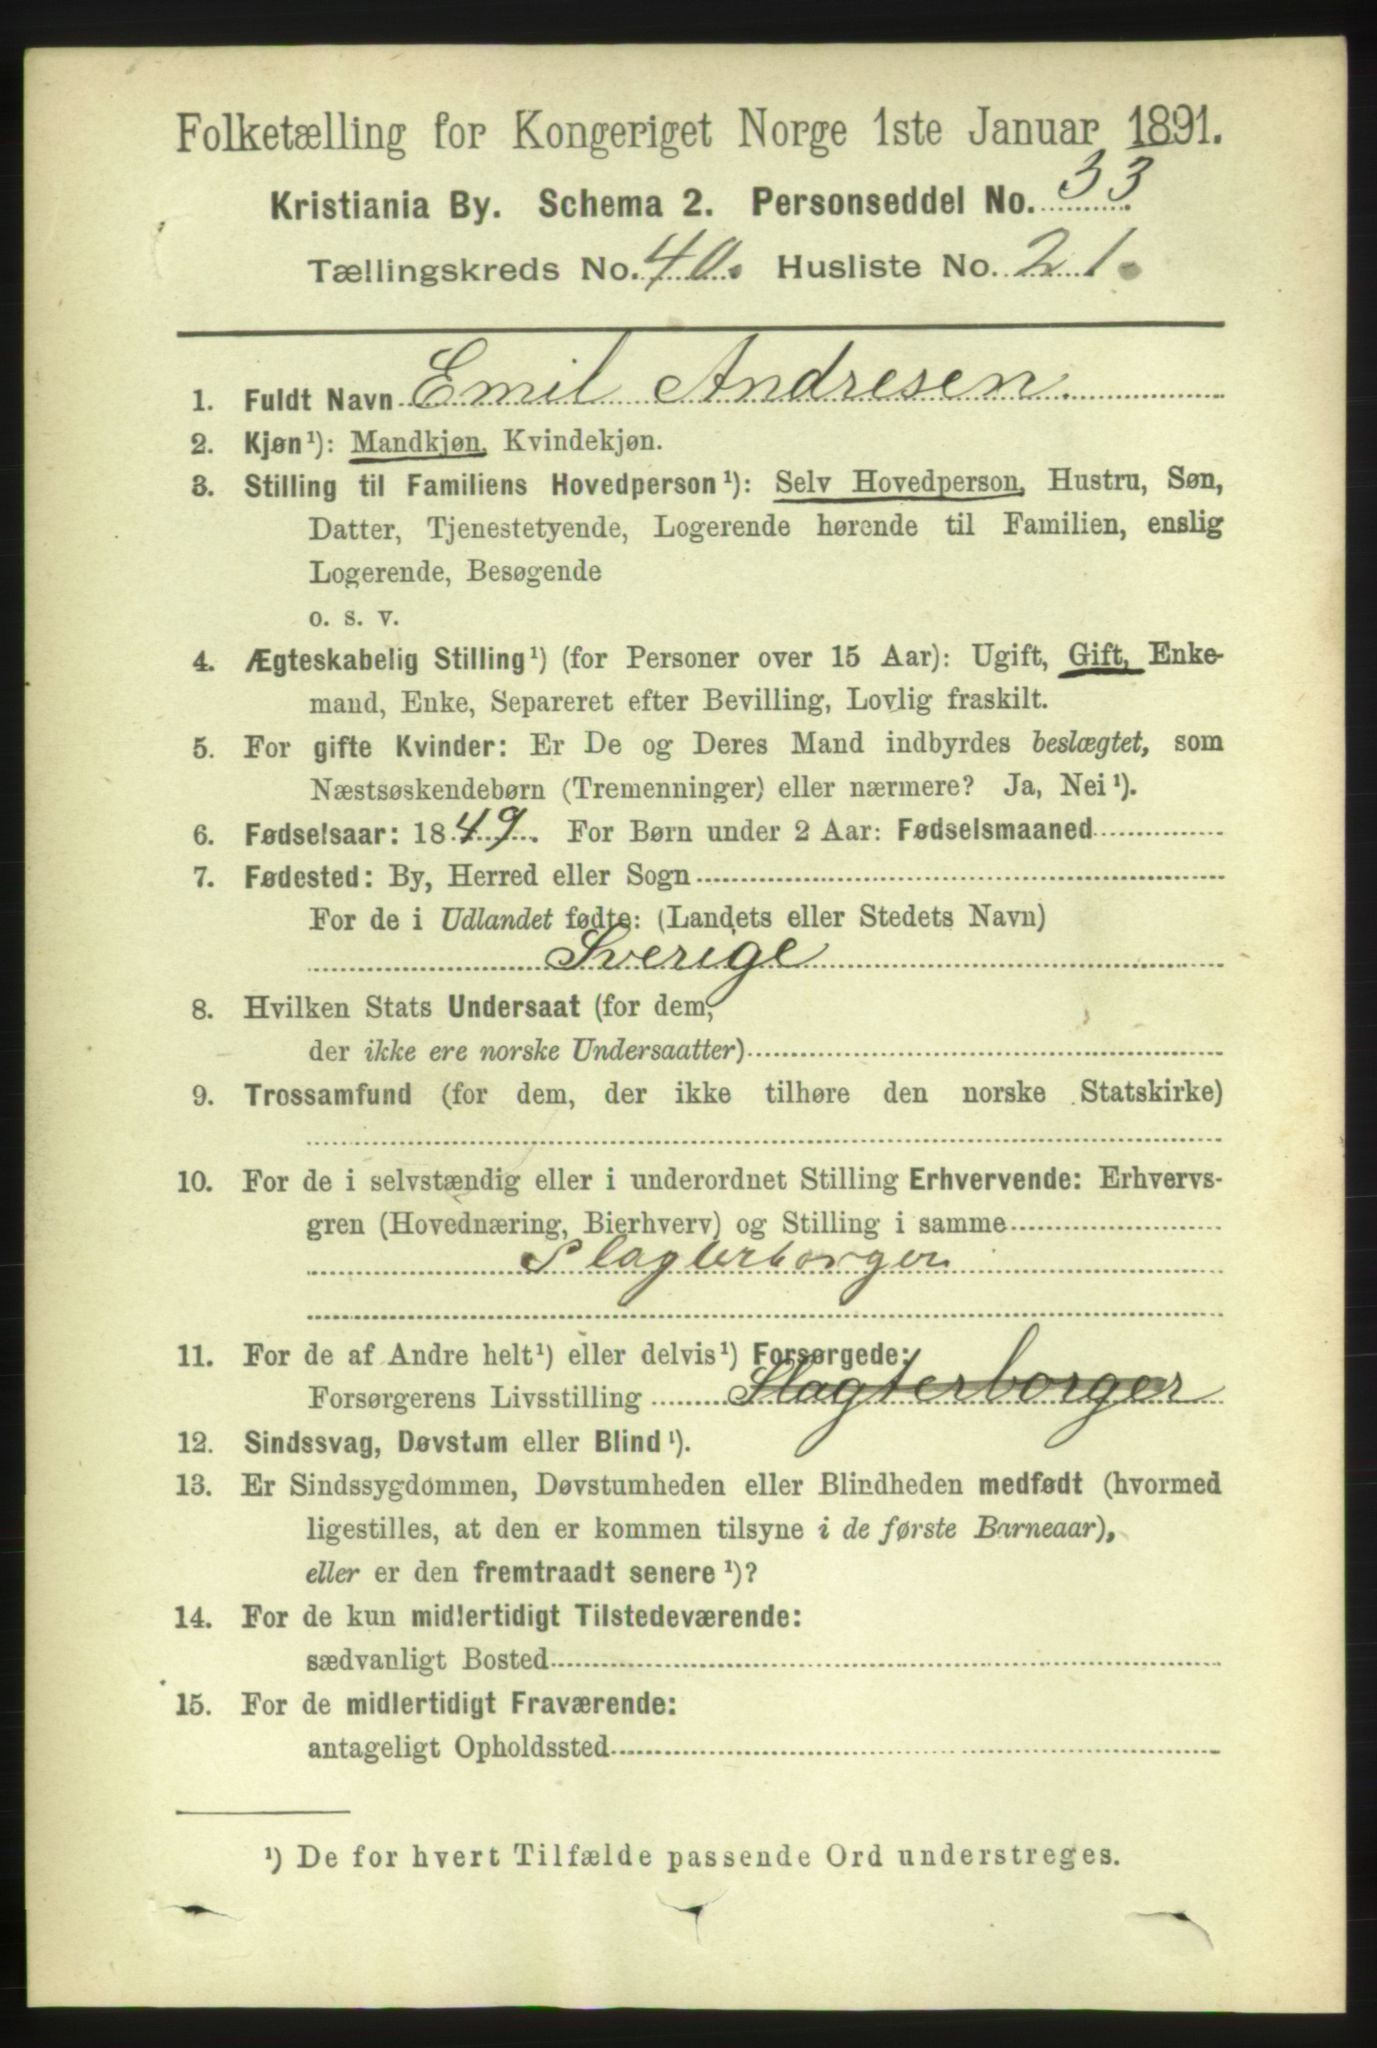 Folketælling for Kongeriget Norge 1ste Januar 1891.
Kristiania By. Schema 2. Personseddel No. 33
Tællingskreds No. 40. Husliste No. 21.
1. Fuldt Navn Emil Andresen.
2. Kjøn¹): Mandkjøn, Kvindekjøn.
3. Stilling til Familiens Hovedperson¹): Selv Hovedperson, Hustru, Søn,
Datter, Tjenestetyende, Logerende hørende til Familien, enslig
Logerende, Besøgende
o. s. v.
4. Ægteskabelig Stilling¹) (for Personer over 15 Aar): Ugift, Gift, Enke-
mand, Enke, Separeret efter Bevilling, Lovlig fraskilt.
5. For gifte Kvinder: Er De og Deres Mand indbyrdes beslægtet, som
Næstsøskendebørn (Tremenninger) eller nærmere? Ja, Nei¹).
6. Fødselsaar: 1849. For Børn under 2 Aar: Fødselsmaaned
7. Fødested: By, Herred eller Sogn
For de i Udlandet fødte: (Landets eller Stedets Navn)
Sverige
8. Hvilken Stats Undersaat (for dem,
der ikke ere norske Undersaatter)
9. Trossamfund (for dem, der ikke tilhøre den norske Statskirke)
10. For de i selvstændig eller i underordnet Stilling Erhvervende: Erhvervs-
gren (Hovednæring, Bierhverv) og Stilling i samme
Slagterborger
11. For de af Andre helt¹) eller delvis¹) Forsørgede:
Forsørgerens Livsstilling Slagterborger
12. Sindssvag, Døvstum eller Blind¹).
13. Er Sindssygdommen, Døvstumheden eller Blindheden medfødt (hvormed
ligestilles, at den er kommen tilsyne i de første Barneaar),
eller er den fremtraadt senere¹)?
14. For de kun midlertidigt Tilstedeværende:
sædvanligt Bosted
15. For de midlertidigt Fraværende:
antageligt Opholdssted
¹) De for hvert Tilfælde passende Ord understreges.